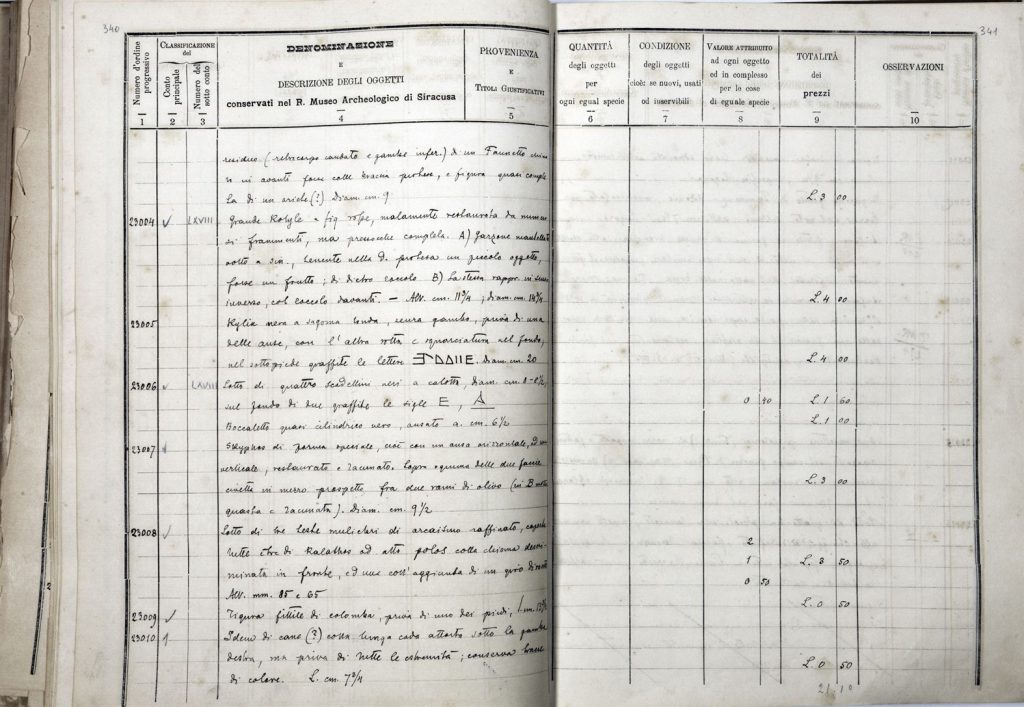 340
Numero d'ordine progressivo
CLASSIFICAZIONE del
Conto principale
Numero del sotto conto
DENOMINAZIONE
E
DESCRIZIONE DEGLI OGGETTI
conservati nel R. Museo Archeologico di Siracusa
PROVENIENZA
E
TITOLI GIUSTIFICATIVI
1 2 3 4 5
residuo (retrocorpo caudato e gambe infer.) di un Faunetto
in avanti forse colle braccia protese, e figura quasi comple
ta di un ariete (?). Diam. cm. 9
23004 LXVIII Grande Kotyle a fig. rosse, malamente restaurata da nume
di frammenti, ma pressoché completa. A) Garzone
volto a sin., tenente nella d. protesa un piccolo oggetto,
forse un frutto; di dietro B) La stessa rappr. in senso
inverso, col davanti. - Alt. cm. 11 3/4; diam. cm. 14 3/4
23005 Kylix nera a sagoma tonda, senza gambo, priva di una
delle anse, con l'altra rotta e squarciatura nel fondo,
nel sottopiede graffite le lettere diam. cm. 20
23006 LXVIII Lotto di quattro scodellini neri a calotta, diam. cm.
sul fondo di due graffite le sigle E, A
Boccaletto quasi cilindrico nero, ansato a. cm. 6 1/2
23007 Skyphos di forma speciale, cioè con un'ansa orizzontale, ed
verticale, restaurato e lacunato. Sopra ognuna delle due facce
civetta in mezzo prospetto fra due rami di olivo (in B
guasta e lacunata). Diam. cm. 9 1/2
23008 Lotto di tre teste muliebri di arcaismo raffinato,
tutte e tre di Kalathos ad alto polos colla chioma
minata in fronte, ed una coll'aggiunta di un giro di
Alt. mm. 85 e 65
23009 Figura fittile di colomba, priva di uno dei piedi,
23010 Idem di cane (?) colla lunga coda attorta sotto la gamba
destra, ma priva di tutte le estremità; conserva tracce
di colore. L. cm. 7 3/4
341
QUANTITÀ
degli oggetti
per
ogni egual specie
CONDIZIONE
degli oggetti
cioè: se nuovi, usati
od inservibili
VALORE ATTRIBUITO
ad ogni oggetto
od in complesso
per le cose
di eguale specie
TOTALITÀ
dei
prezzi
OSSERVAZIONI
6 7 8 9 10
L. 3 00
L. 4 00
L. 4 00
0 40 L. 1 60
L. 1 00
L. 3 00
2
1 L. 3 50
0 50
L. 0 50
L. 0 50
21.10